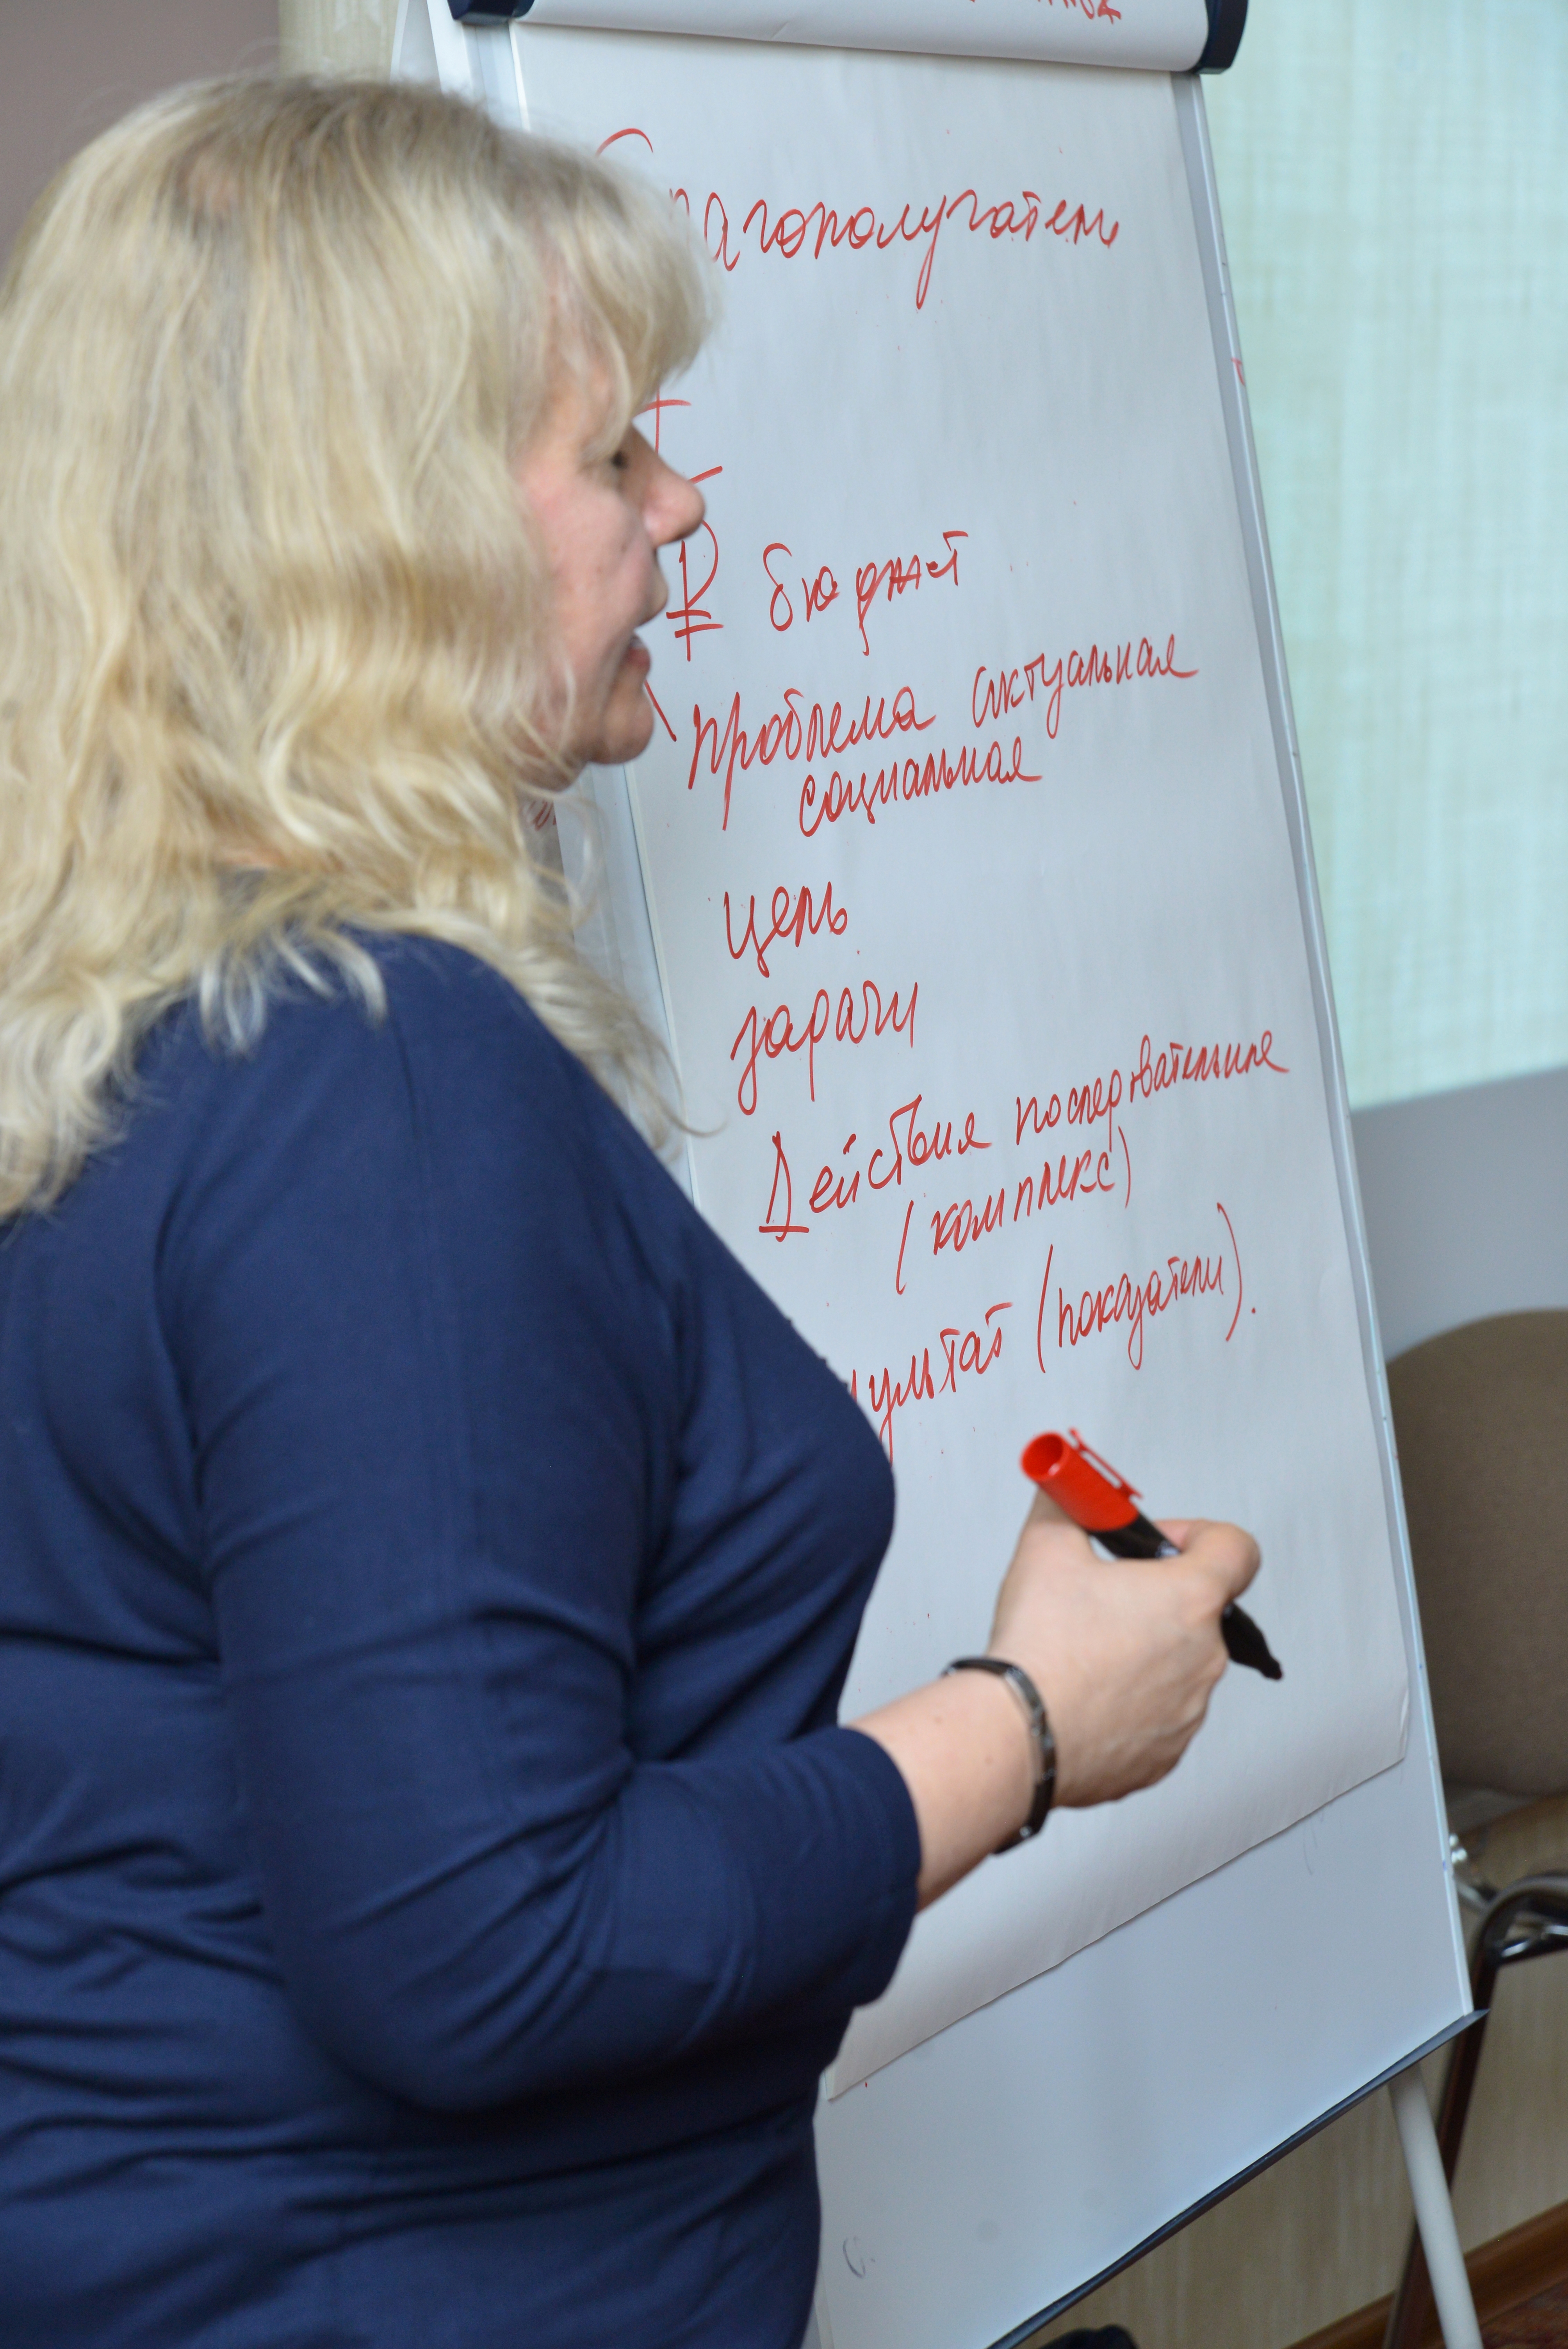 лагополучатель
₽ бюджет
Проблема актуальная
социальная
цель
задачи
Действия последовательные
(комплекс)
ультат (показатели).